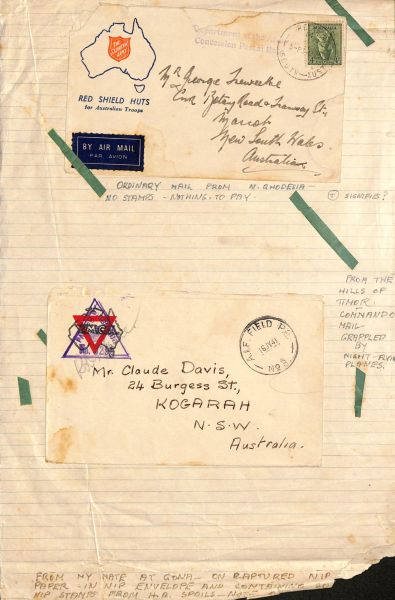 THE SALVATION ARMY
RED SHIELD HUTS
for Australian Troops
BY AIR MAIL
PAR AVION
Department of the
Concession Postal
AUSTRALIA
Mr George
Road & Tramway St.,
Mascot
New South Wales.
Australia.
ORDINARY MAIL FROM N. RHODESIA -
NO STAMPS - NOTHING TO PAY.
T SIGNIFIES?
FROM THE
HILLS OF
TIMOR.
COMMANDO
MAIL
GRAPPLED
BY
NIGHT-FLYING
PLANES.
Y.M.C.A.
A.I.F. FIELD P.O.
No 5
Mr. Claude Davis,
24 Burgess St.,
KOGARAH
N.S.W.
Australia.
FROM MY MATE AT GONA - ON RAPTURED NIP
PAPER - IN NIP ENVELOPE AND CONTAINING
NIP STAMPS FROM H.Q. SPOILS - NOTE